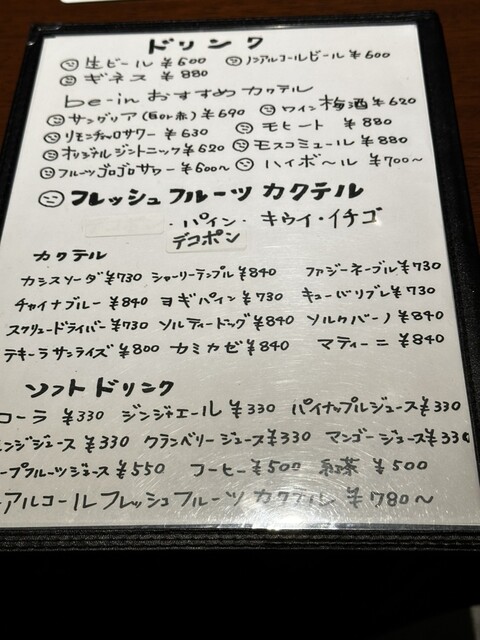 ドリンク
生ビール ¥600 ノンアルコールビール ¥600
ギネス ¥880
be-in おすすめカクテル
サングリア(白or赤) ¥690 ワイン梅酒 ¥620
リモンチェッロサワー ¥630 モヒート ¥880
オリジナルジントニック ¥620 モスコミュール ¥880
フルーツゴロゴロサワー ¥600〜 ハイボール ¥700〜
フレッシュフルーツカクテル
・パイン・キウイ・イチゴ
デコポン
カクテル
カシスソーダ ¥730 シャーリーテンプル ¥840 ファジーネーブル ¥730
チャイナブルー ¥840 ヨギパイン ¥730 キューバリブレ ¥730
スクリュードライバー ¥730 ソルティードッグ ¥840 ソルクバーノ ¥840
テキーラサンライズ ¥800 カミカゼ ¥840 マティーニ ¥840
ソフトドリンク
コーラ ¥330 ジンジャエール ¥330 パイナップルジュース ¥330
ンジジュース ¥330 クランベリージュース ¥330 マンゴージュース ¥330
ープフルーツジュース ¥550 コーヒー ¥500 紅茶 ¥500
ーアルコールフレッシュフルーツカクテル ¥780〜